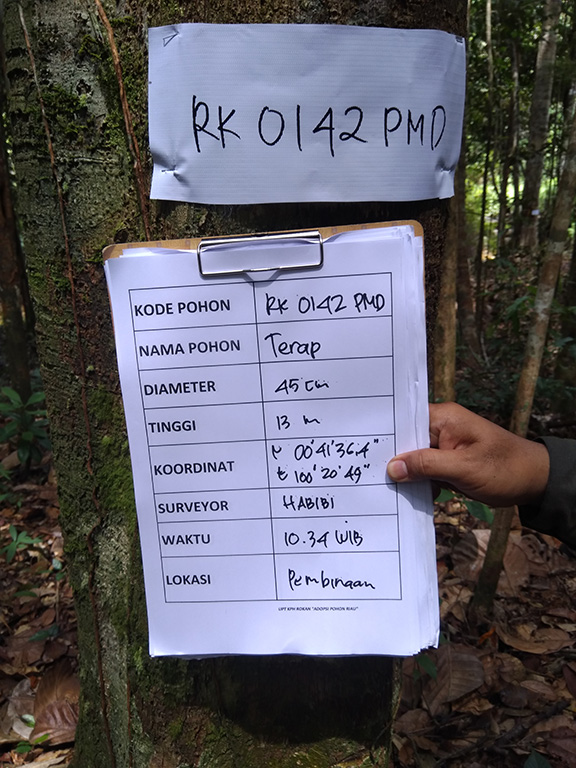 RK 0142 PMD
KODE POHON RK 0142 PMD
NAMA POHON Terap
DIAMETER 45 cm
TINGGI 13 m
KOORDINAT N 00°41'36.4"
E 100°20'49"
SURVEYOR HABIBI
WAKTU 10.34 WIB
LOKASI Pembinaan
UPT KPH ROKAN "ADOPSI POHON RIAU"